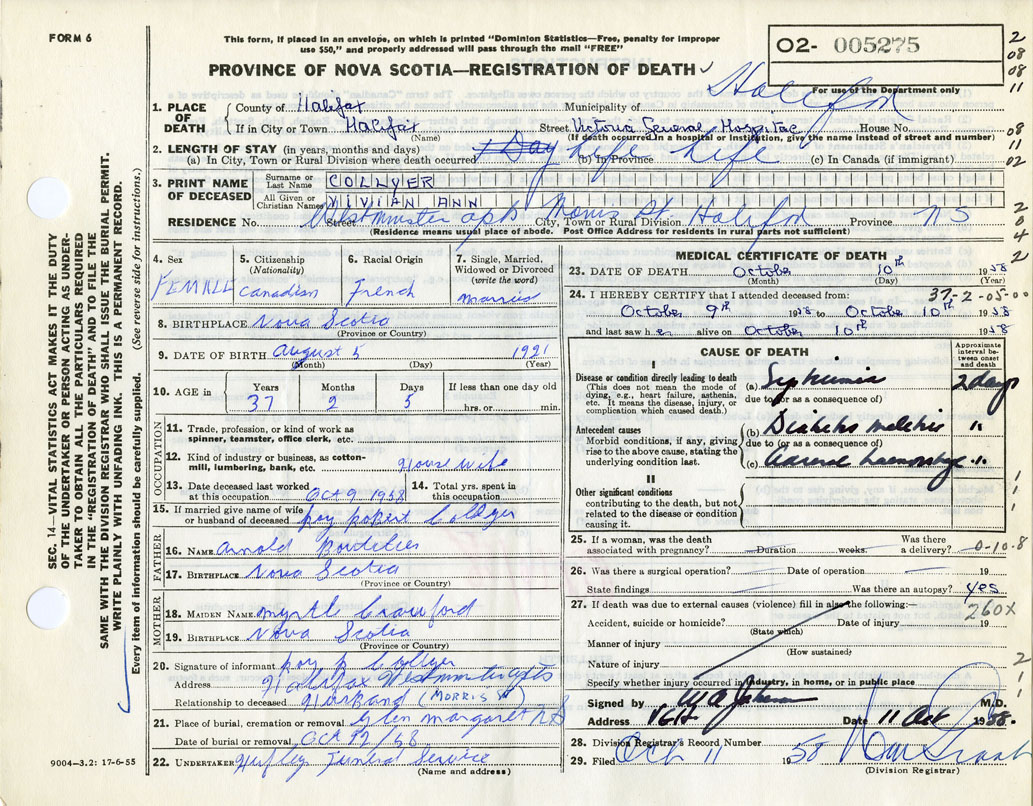 FORM 6
This form, if placed in an envelope, on which is printed "Dominion Statistics—Free, penalty for improper
use $50," and properly addressed will pass through the mail "FREE"
02- 005275
For use of the Department only
PROVINCE OF NOVA SCOTIA—REGISTRATION OF DEATH
Halifax
2
08
08
11
08
11
02
2
0
4
2
1. PLACE OF DEATH
County of Halifax Municipality of
If in City or Town Halifax Street Victoria General Hospital House No.
(Name) (If death occurred in a hospital or Institution, give the name instead of street and number)
2. LENGTH OF STAY (in years, months and days)
(a) In City, Town or Rural Division where death occurred 1 Day Life (b) In Province Life (c) In Canada (if immigrant)
3. PRINT NAME OF DECEASED
Surname or Last Name COLLYER
All Given or Christian Names VIVIAN ANN
RESIDENCE No. Westminster apts Street Morris St. City, Town or Rural Division Halifax Province NS
(Residence means usual place of abode. Post Office Address for residents in rural parts not sufficient)
4. Sex FEMALE
5. Citizenship (Nationality) Canadian
6. Racial Origin French
7. Single, Married, Widowed or Divorced (write the word) Married
8. BIRTHPLACE Nova Scotia
(Province or Country)
9. DATE OF BIRTH August 5 1921
(Month) (Day) (Year)
10. AGE in Years 37 Months 2 Days 5 If less than one day old hrs. or min.
OCCUPATION
11. Trade, profession, or kind of work as spinner, teamster, office clerk, etc.
12. Kind of industry or business, as cotton-mill, lumbering, bank, etc. House wife
13. Date deceased last worked at this occupation Oct 9 1958
14. Total yrs. spent in this occupation
15. If married give name of wife or husband of deceased Roy Robert Collyer
FATHER
16. NAME Arnold Boutelier
17. BIRTHPLACE Nova Scotia
(Province or Country)
MOTHER
18. MAIDEN NAME Myrtl Crawford
19. BIRTHPLACE Nova Scotia
(Province or Country)
20. Signature of informant Roy R Collyer
Address Halifax Westminster apts
Relationship to deceased Husband (MORRIS St)
21. Place of burial, cremation or removal Glen Margaret NS
Date of burial or removal Oct 12/58
22. UNDERTAKER Funeral Service
(Name and address)
MEDICAL CERTIFICATE OF DEATH
23. DATE OF DEATH October 10th 1958
(Month) (Day) (Year)
24. I HEREBY CERTIFY that I attended deceased from: 37-2-05-00
October 9th 1958 to October 10th 1958
and last saw her alive on October 10th 1958
CAUSE OF DEATH
Approximate interval between onset and death
I
Disease or condition directly leading to death
(This does not mean the mode of dying, e.g., heart failure, asthenia, etc. It means the disease, injury, or complication which caused death.)
(a) Septicemia 2 days
due to (or as a consequence of)
Antecedent causes
Morbid conditions, if any, giving rise to the above cause, stating the underlying condition last.
(b) Diabetes mellitus "
due to (or as a consequence of)
(c) haemorrhage "
II
Other significant conditions
contributing to the death, but not related to the disease or condition causing it.
1
1
1
25. If a woman, was the death associated with pregnancy? Duration weeks. Was there a delivery? 0-10-8
26. Was there a surgical operation? Date of operation 19
State findings Was there an autopsy? yes
27. If death was due to external causes (violence) fill in also the following:— 260X
Accident, suicide or homicide? Date of injury 19
(State which)
Manner of injury
(How sustained)
Nature of injury
Specify whether injury occurred in industry, in home, or in public place
2
1
1
Signed by M.D.
Address V.G.H. Date 11 Oct 1958.
28. Division Registrar's Record Number
29. Filed Oct 11 1958
(Division Registrar)
SEC. 14—VITAL STATISTICS ACT MAKES IT THE DUTY
OF THE UNDERTAKER OR PERSON ACTING AS UNDER-
TAKER TO OBTAIN ALL THE PARTICULARS REQUIRED
IN THE "REGISTRATION OF DEATH" AND TO FILE THE
SAME WITH THE DIVISION REGISTRAR WHO SHALL ISSUE THE BURIAL PERMIT.
WRITE PLAINLY WITH UNFADING INK. THIS IS A PERMANENT RECORD.
Every item of information should be carefully supplied. (See reverse side for instructions.)
9004-3.2: 17-6-55